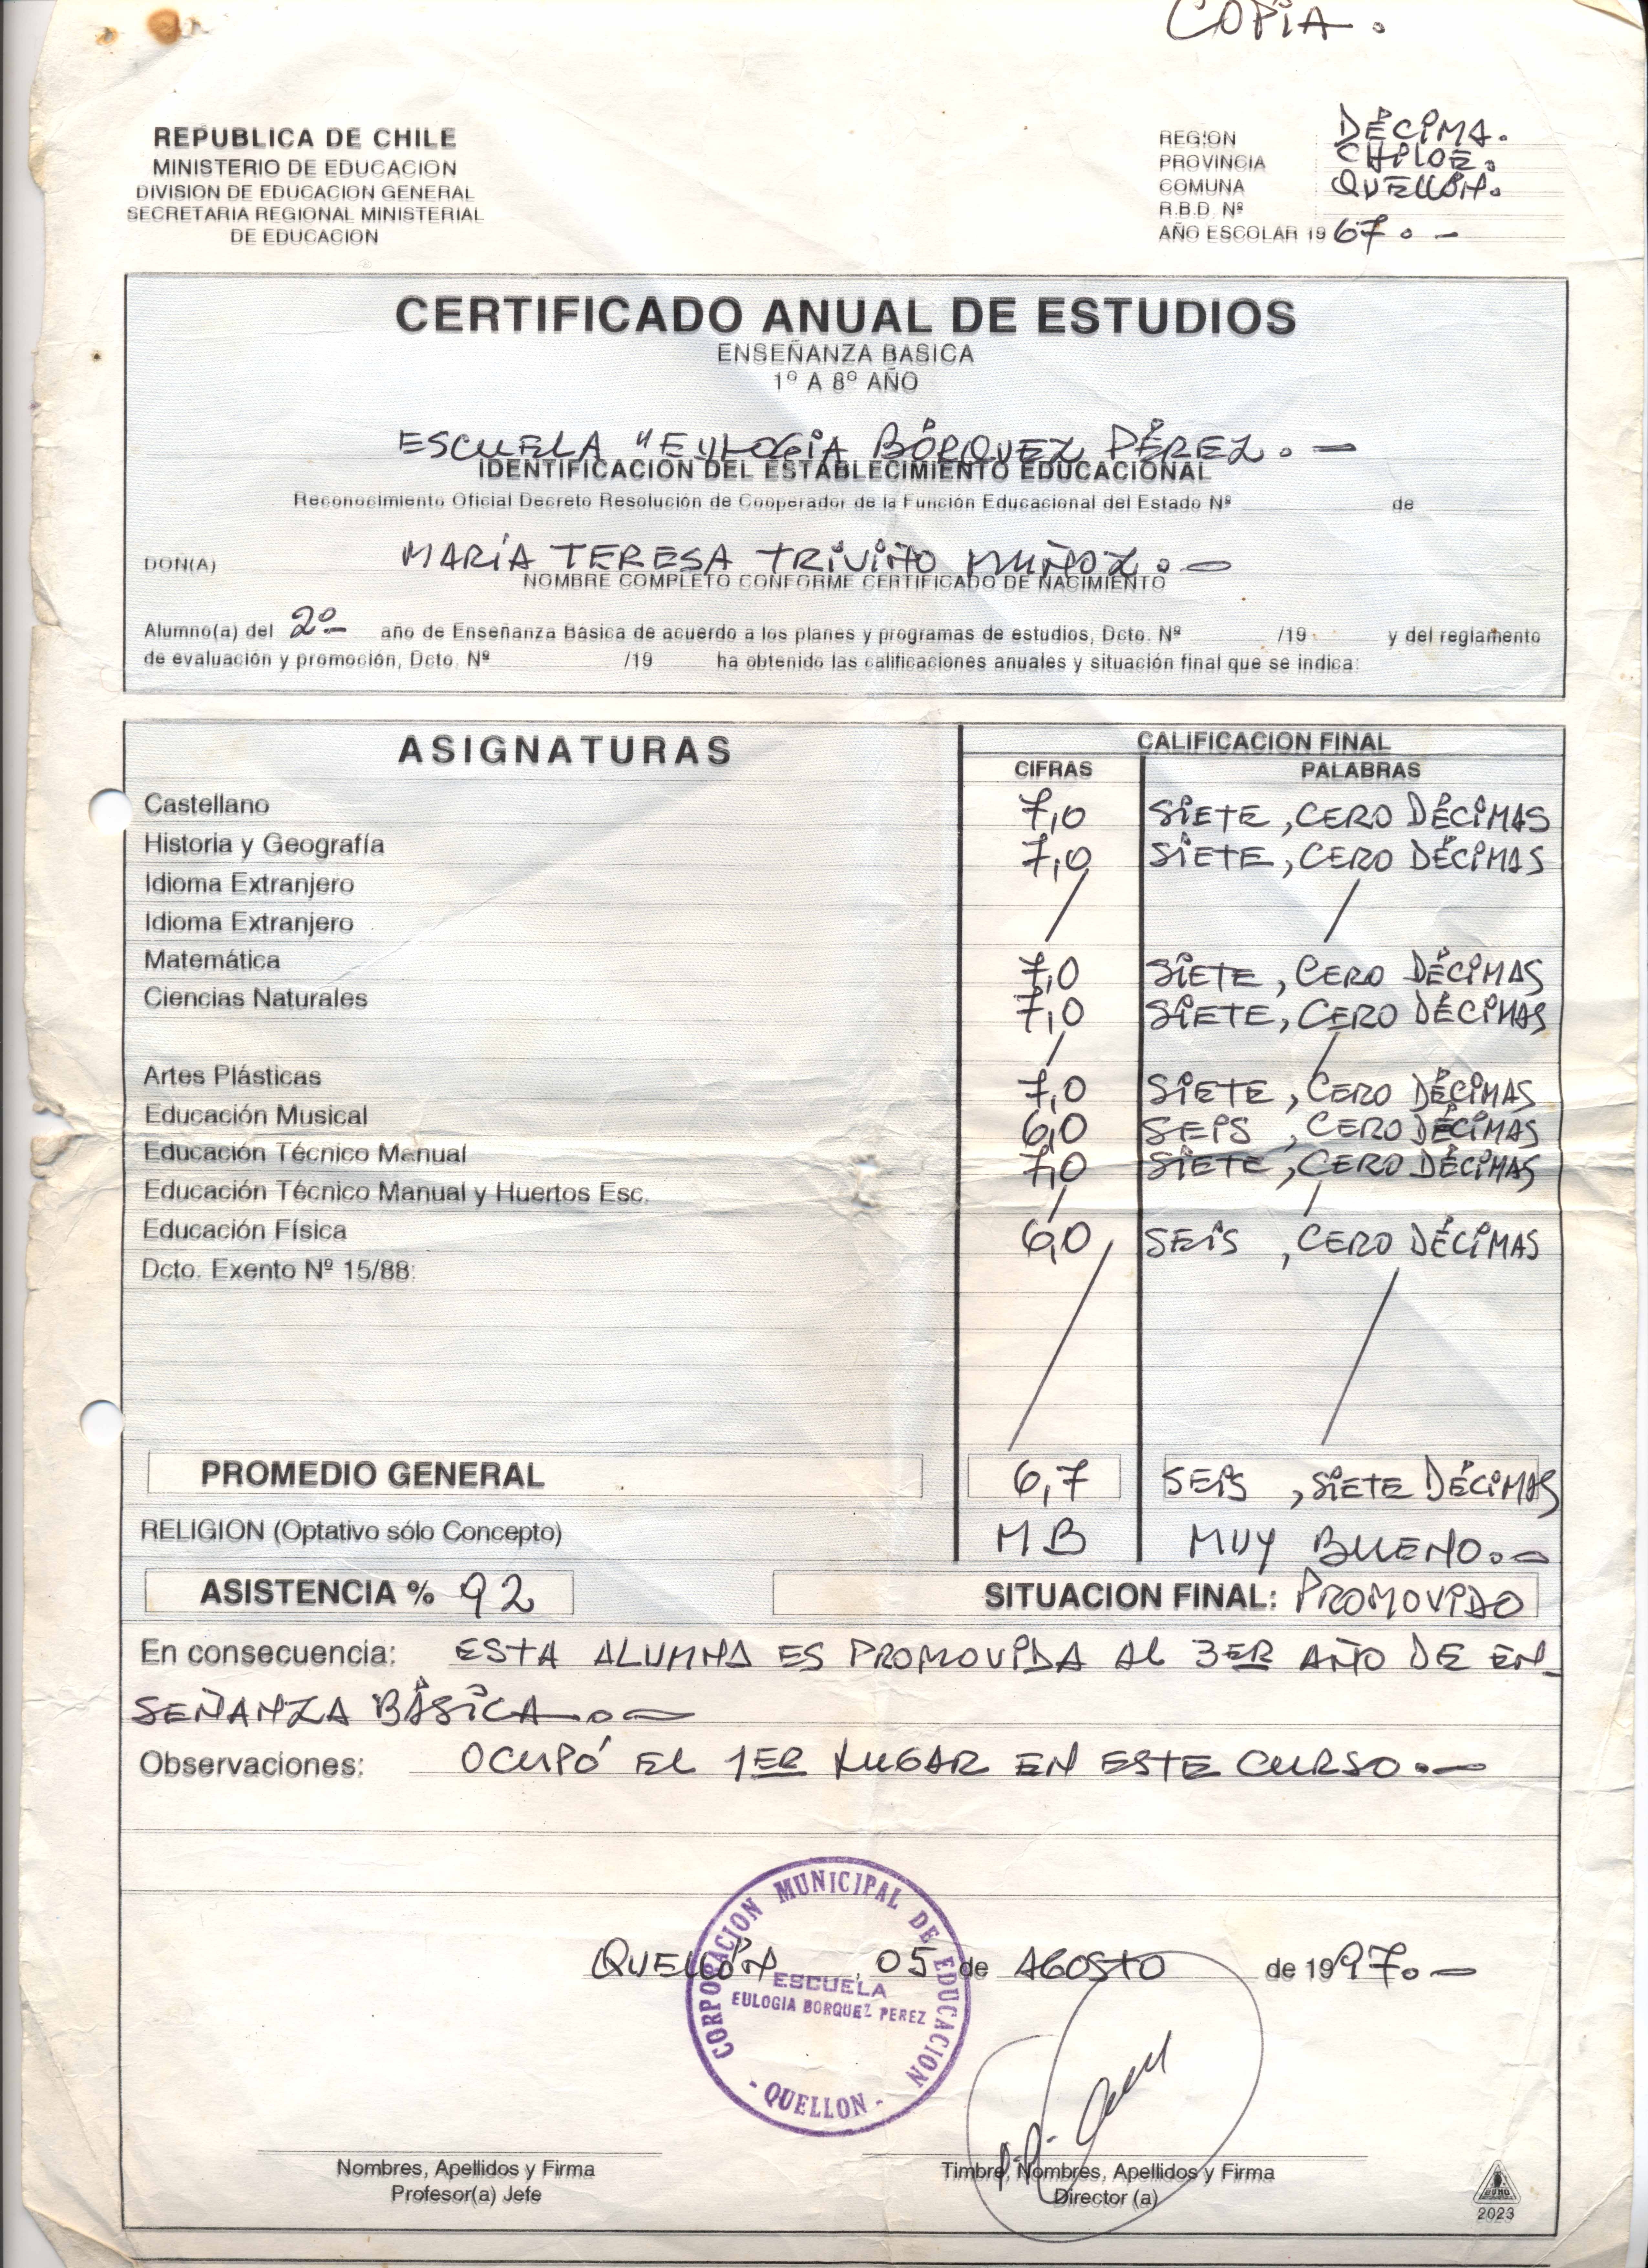 COPIA.
REPUBLICA DE CHILE
MINISTERIO DE EDUCACION
DIVISION DE EDUCACION GENERAL
SECRETARIA REGIONAL MINISTERIAL
DE EDUCACION
REGION : DÉCIMA.
PROVINCIA : CHILOÉ.
COMUNA : QUELLÓN.
R.B.D. Nº :
AÑO ESCOLAR 19 67.-
CERTIFICADO ANUAL DE ESTUDIOS
ENSEÑANZA BASICA
1º A 8º AÑO
ESCUELA "EULOGIA BÓRQUEZ PÉREZ.-
IDENTIFICACION DEL ESTABLECIMIENTO EDUCACIONAL
Reconocimiento Oficial Decreto Resolución de Cooperador de la Función Educacional del Estado Nº de
DON(A) MARÍA TERESA TRIVIÑO MUÑOZ.-
NOMBRE COMPLETO CONFORME CERTIFICADO DE NACIMIENTO
Alumno(a) del 2º año de Enseñanza Básica de acuerdo a los planes y programas de estudios, Dcto. Nº /19 y del reglamento
de evaluación y promoción, Dcto. Nº /19 ha obtenido las calificaciones anuales y situación final que se indica:
ASIGNATURAS CALIFICACION FINAL
CIFRAS PALABRAS
Castellano 7,0 SIETE, CERO DÉCIMAS
Historia y Geografía 7,0 SIETE, CERO DÉCIMAS
Idioma Extranjero
Idioma Extranjero
Matemática 7,0 SIETE, CERO DÉCIMAS
Ciencias Naturales 7,0 SIETE, CERO DÉCIMAS
Artes Plásticas 7,0 SIETE, CERO DÉCIMAS
Educación Musical 6,0 SEIS, CERO DÉCIMAS
Educación Técnico Manual 7,0 SIETE, CERO DÉCIMAS
Educación Técnico Manual y Huertos Esc.
Educación Física 6,0 SEIS, CERO DÉCIMAS
Dcto. Exento Nº 15/88:
PROMEDIO GENERAL 6,7 SEIS, SIETE DÉCIMAS
RELIGION (Optativo sólo Concepto) MB MUY BUENO.-
ASISTENCIA % 92 SITUACION FINAL: PROMOVIDO
En consecuencia: ESTA ALUMNA ES PROMOVIDA AL 3ER AÑO DE EN-
SEÑANZA BÁSICA.-
Observaciones: OCUPÓ EL 1ER LUGAR EN ESTE CURSO.-
QUELLÓN, 05 de AGOSTO de 1997.-
CORPORACION MUNICIPAL DE EDUCACION
ESCUELA
EULOGIA BORQUEZ PEREZ
- QUELLON -
Nombres, Apellidos y Firma
Profesor(a) Jefe
Timbre, Nombres, Apellidos y Firma
Director (a)
2023